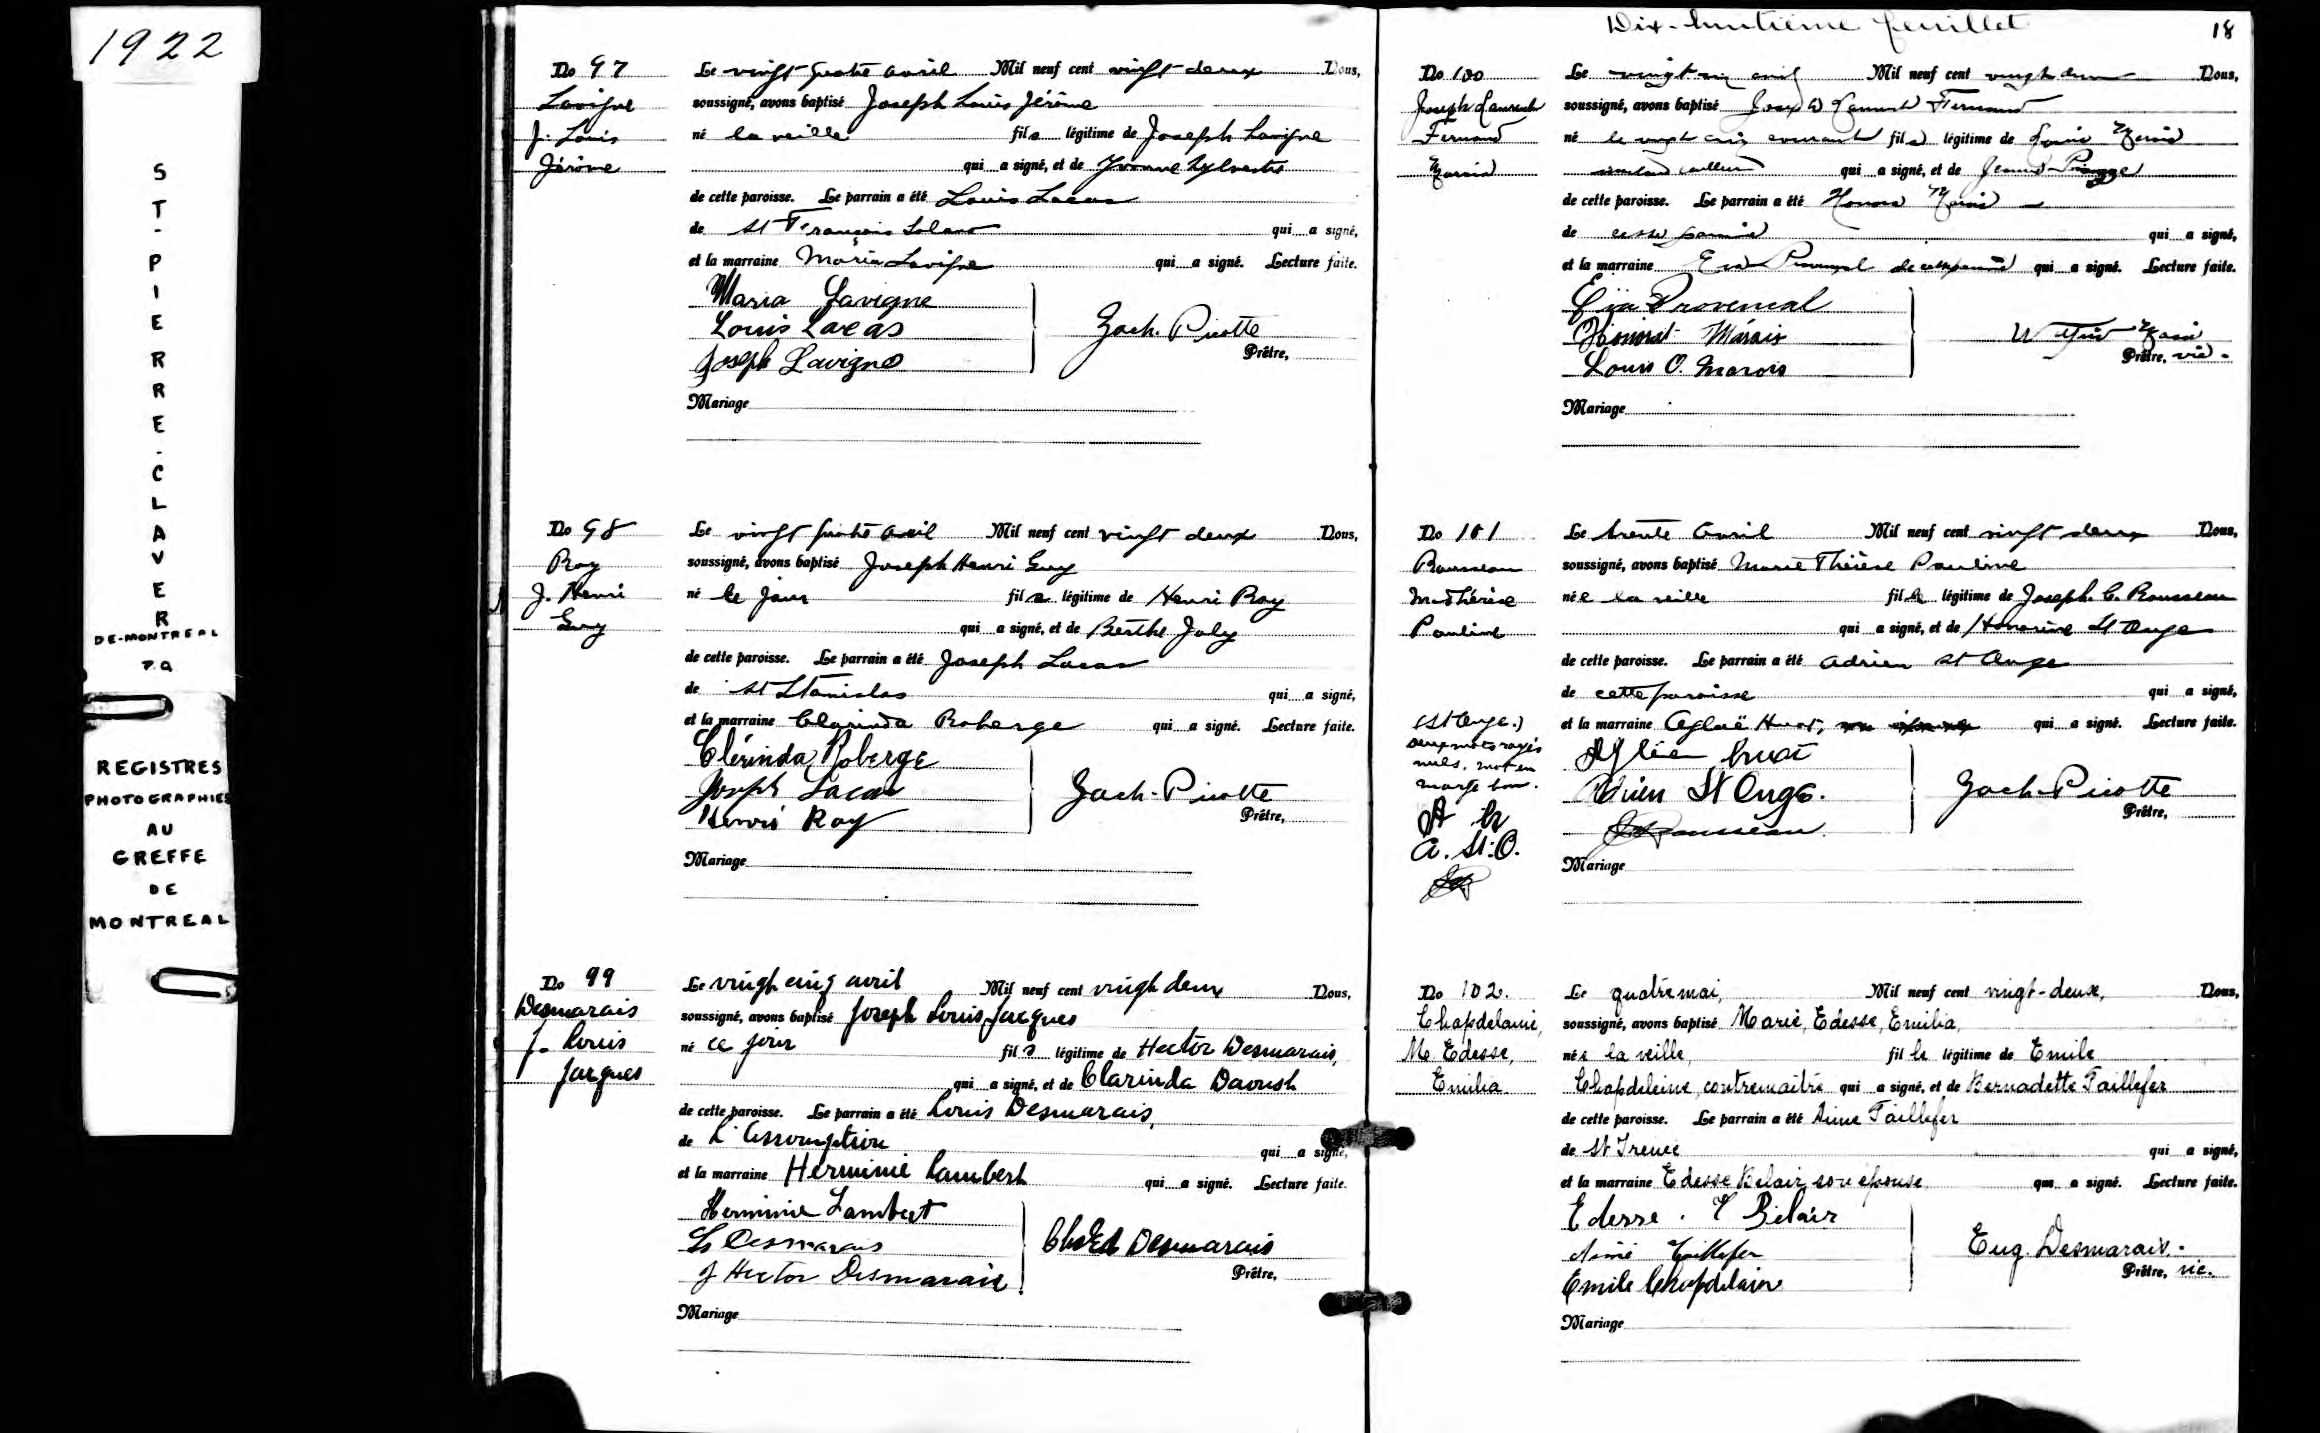 1922
ST-PIERRE-CLAVER
DE-MONTREAL
P.Q
REGISTRES
PHOTOGRAPHIES
AU
GREFFE
DE
MONTREAL
No 97
Lavigne
J. Louis
Jérôme
Le vingt quatre avril Mil neuf cent vingt deux Nous,
soussigné, avons baptisé Joseph Louis Jérôme
né la veille fils légitime de Joseph Lavigne
qui a signé, et de Yvonne Sylvestre
de cette paroisse. Le parrain a été Louis Lucas
de St François Solano qui a signé,
et la marraine Maria Lavigne qui a signé. Lecture faite.
Maria Lavigne
Louis Lucas
Joseph Lavigne
Zach. Picotte
Prêtre,
Mariage
No 98
Roy
J. Henri
Guy
Le vingt quatre avril Mil neuf cent vingt deux Nous,
soussigné, avons baptisé Joseph Henri Guy
né le jour fils légitime de Henri Roy
qui a signé, et de Berthe Joly
de cette paroisse. Le parrain a été Joseph Lucas
de St Stanislas qui a signé,
et la marraine Clarinda Roberge qui a signé. Lecture faite.
Clérinda Roberge
Joseph Lucas
Henri Roy
Zach. Picotte
Prêtre,
Mariage
No 99
Desmarais
J. Louis
Jacques
Le vingt cinq avril Mil neuf cent vingt deux Nous,
soussigné, avons baptisé Joseph Louis Jacques
né ce jour fils légitime de Hector Desmarais,
qui a signé, et de Clarinda Daoust
de cette paroisse. Le parrain a été Louis Desmarais,
de L'Assomption qui a signé,
et la marraine Herminie Lambert qui a signé. Lecture faite.
Herminie Lambert
Ls Desmarais
J Hector Desmarais
Chs Ed Desmarais
Prêtre,
Mariage
Dix-huitième feuillet 18
No 100
Joseph Laurent
Fernand
Marois
Le vingt avril Mil neuf cent vingt deux Nous,
soussigné, avons baptisé Joseph Laurent Fernand
né le vingt cinq courant fils légitime de Louis Marois
qui a signé, et de Jeanne
de cette paroisse. Le parrain a été Honoré Marois
de cette paroisse qui a signé,
et la marraine Eva Provençal de cette paroisse qui a signé. Lecture faite.
Eva Provencal
Marois
Louis O. Marois
Marois
Prêtre, vic.
Mariage
No 101
Rousseau
M. Thérèse
Pauline
Le trente avril Mil neuf cent vingt deux Nous,
soussigné, avons baptisé Marie Thérèse Pauline
née la veille fille légitime de Joseph C. Rousseau
qui a signé, et de Honorine St Ange
de cette paroisse. Le parrain a été Adrien St Ange
de cette paroisse qui a signé,
et la marraine Aglaë Huot, qui a signé. Lecture faite.
(St Ange.)
deux mots rayés
nuls, mot en
marge bon.
A H
A. St. O.
Aglaé Huot
Adrien St Onge.
Rousseau
Zach. Picotte
Prêtre,
Mariage
No 102.
Chapdelaine,
M. Edesse,
Emilia
Le quatre mai, Mil neuf cent vingt-deux, Nous,
soussigné, avons baptisé Marie, Edesse, Emilia,
née la veille, fille légitime de Emile
Chapdeleine, contremaître qui a signé, et de Bernadette Taillefer
de cette paroisse. Le parrain a été Aimé Taillefer
de St Irenée qui a signé,
et la marraine Edesse Belair son épouse qui a signé. Lecture faite.
Edesse. T Bélair
Aimé Taillefer
Emile Chapdelaine
Eug. Desmarais.
Prêtre, vic.
Mariage